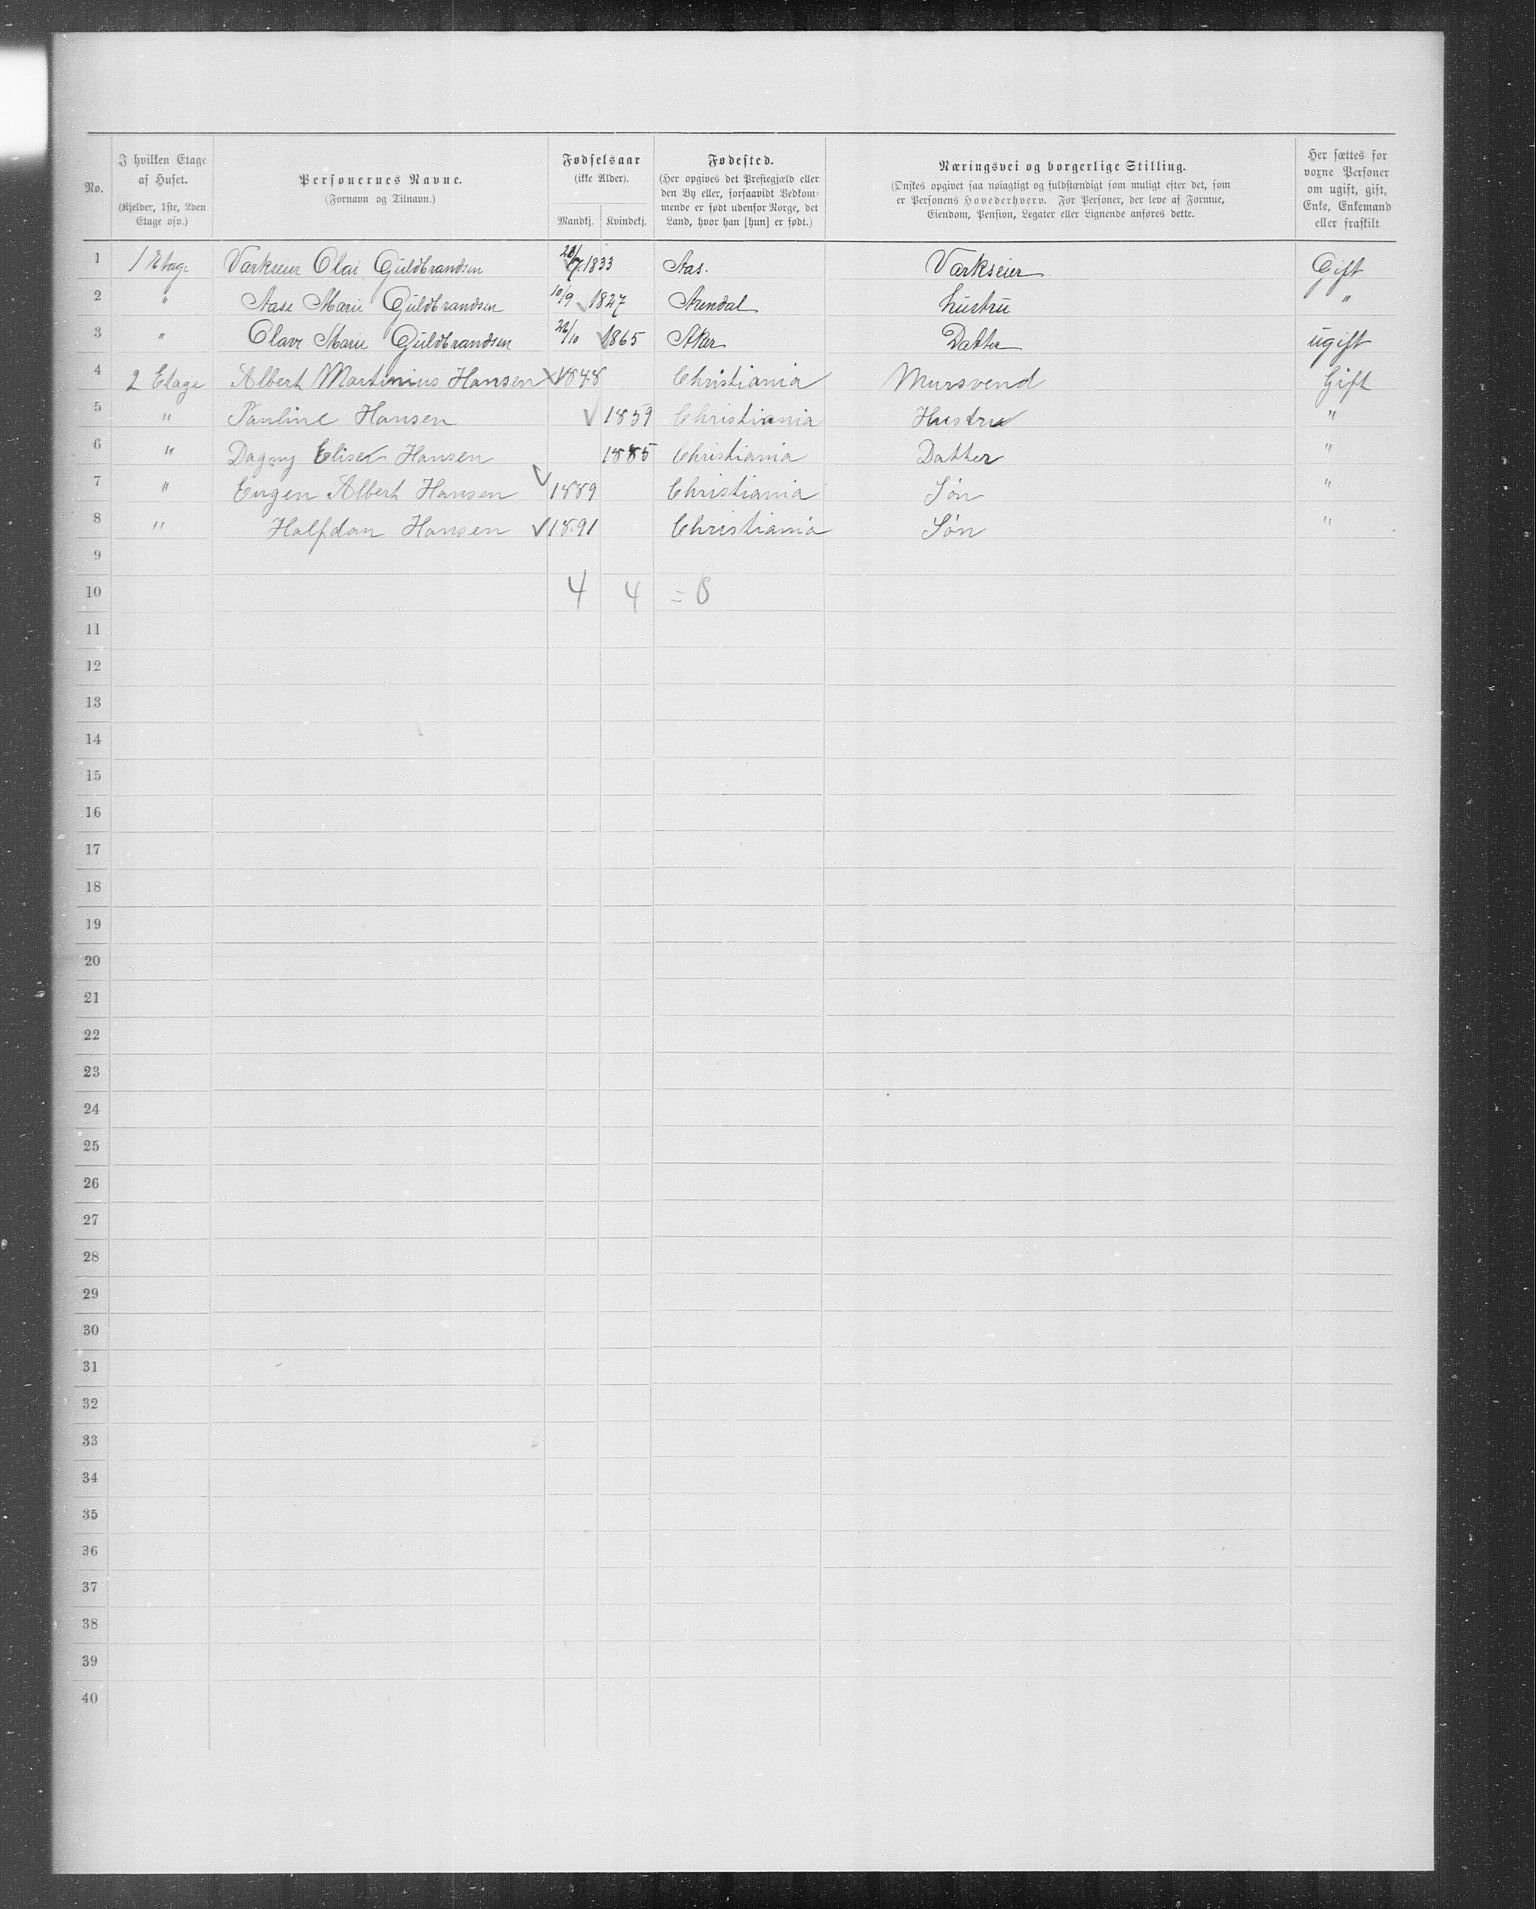 No.
I hvilken Etage af Huset.
(Kjelder, 1ste, 2den Etage osv.)
Personernes Navne.
(Fornavn og Tilnavn.)
Fødselsaar
(ikke Alder).
Mandkj. Kvindekj.
Fødested.
(Her opgives det Prestegjæld eller den By eller, forsaavidt Vedkommende er født udenfor Norge, det Land, hvor han [hun] er født.)
Næringsvei og borgerlige Stilling.
(Ønskes opgivet saa nøiagtigt og fuldstændigt som muligt efter det, som er Personens Hovederhverv. For Personer, der leve af Formue, Eiendom, Pension, Legater eller Lignende anføres dette.
Her sættes for voxne Personer om ugift, gift, Enke, Enkemand eller fraskilt
1 1 Etage Værkseier Olai Guldbrandsen 1833 Aas. Værkseier Gift
2 " Aase Marie Guldbrandsen 10/9 1827 Arendal Hustru "
3 " Olave Marie Guldbrandsen 1865 Aker Datter ugift
4 2 Etage Albert Martinius Hansen 1848 Christiania Mursvend Gift
5 " Pauline Hansen 1859 Christiania Hustru "
6 " Dagny Elise Hansen 1885 Christiania Datter "
7 " Eugen Albert Hansen 1889 Christiania Søn "
8 " Halfdan Hansen 1891 Christiania Søn "
9
10 4 4 = 8
11
12
13
14
15
16
17
18
19
20
21
22
23
24
25
26
27
28
29
30
31
32
33
34
35
36
37
38
39
40